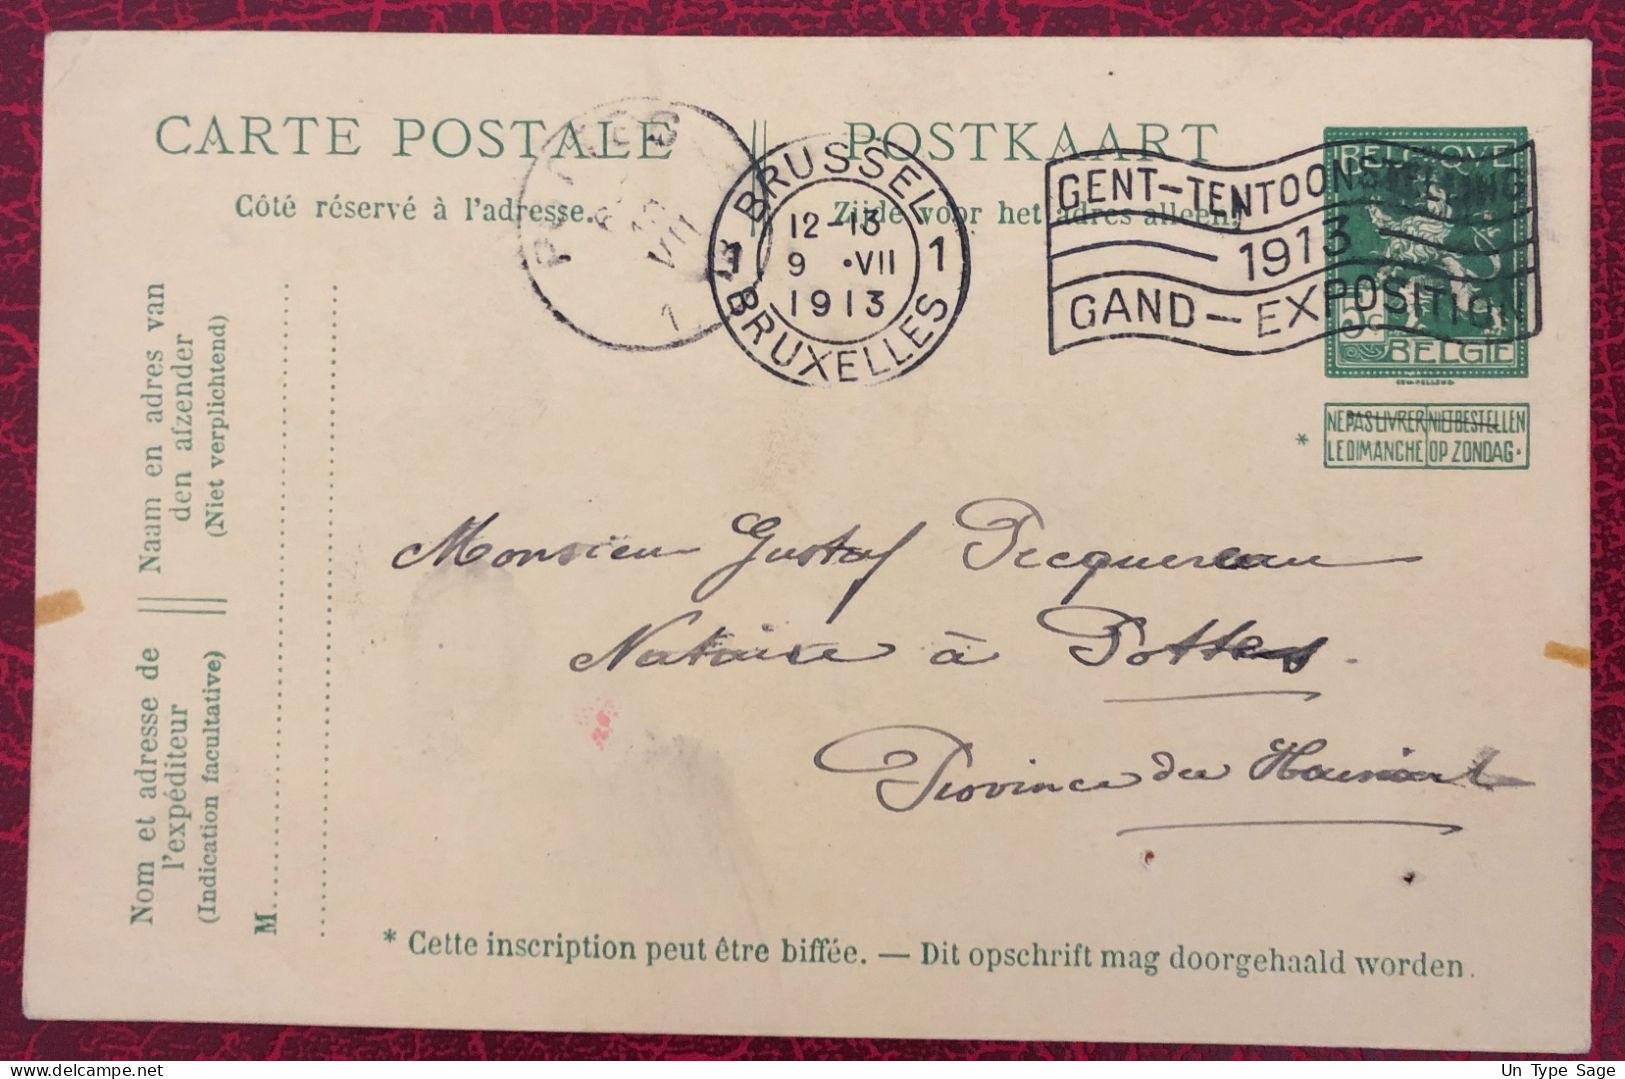 CARTE POSTALE || POSTKAART
Côté réservé à l'adresse. || Zijde voor het adres alleen.
POTTES
VII
1
BRUSSEL
1 1
12-13
9 •VII
1913
BRUXELLES
GENT-TENTOONSTELLING
1913
GAND-EXPOSITION
BELGIQUE
5c
BELGIË
NE PAS LIVRER NIET BESTELLEN
* LE DIMANCHE OP ZONDAG.
Nom et adresse de || Naam en adres van
l'expéditeur || den afzender
(Indication facultative) || (Niet verplichtend)
M.
Monsieur Gustaf Pecquereau
Notaire à Pottes.
Province du Hainaut
* Cette inscription peut être biffée. — Dit opschrift mag doorgehaald worden.
Un Type Sage